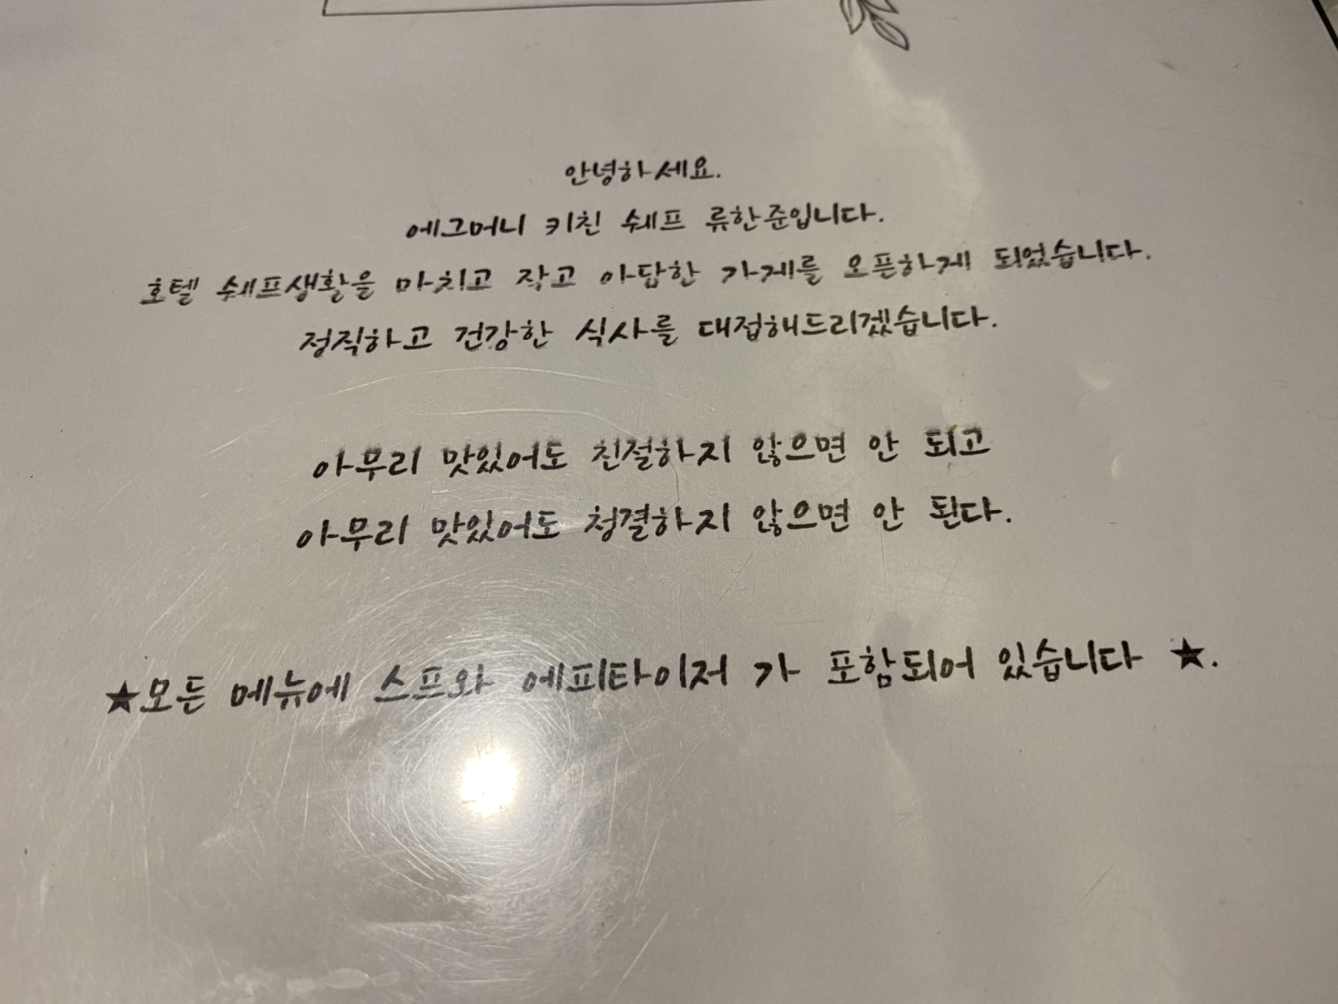 안녕하세요.
에그머니 키친 쉐프 류한준입니다.
호텔 쉐프생활을 마치고 작고 아담한 가게를 오픈하게 되었습니다.
정직하고 건강한 식사를 대접해드리겠습니다.
아무리 맛있어도 친절하지 않으면 안 되고
아무리 맛있어도 청결하지 않으면 안 된다.
★모든 메뉴에 스프와 에피타이저 가 포함되어 있습니다 ★.